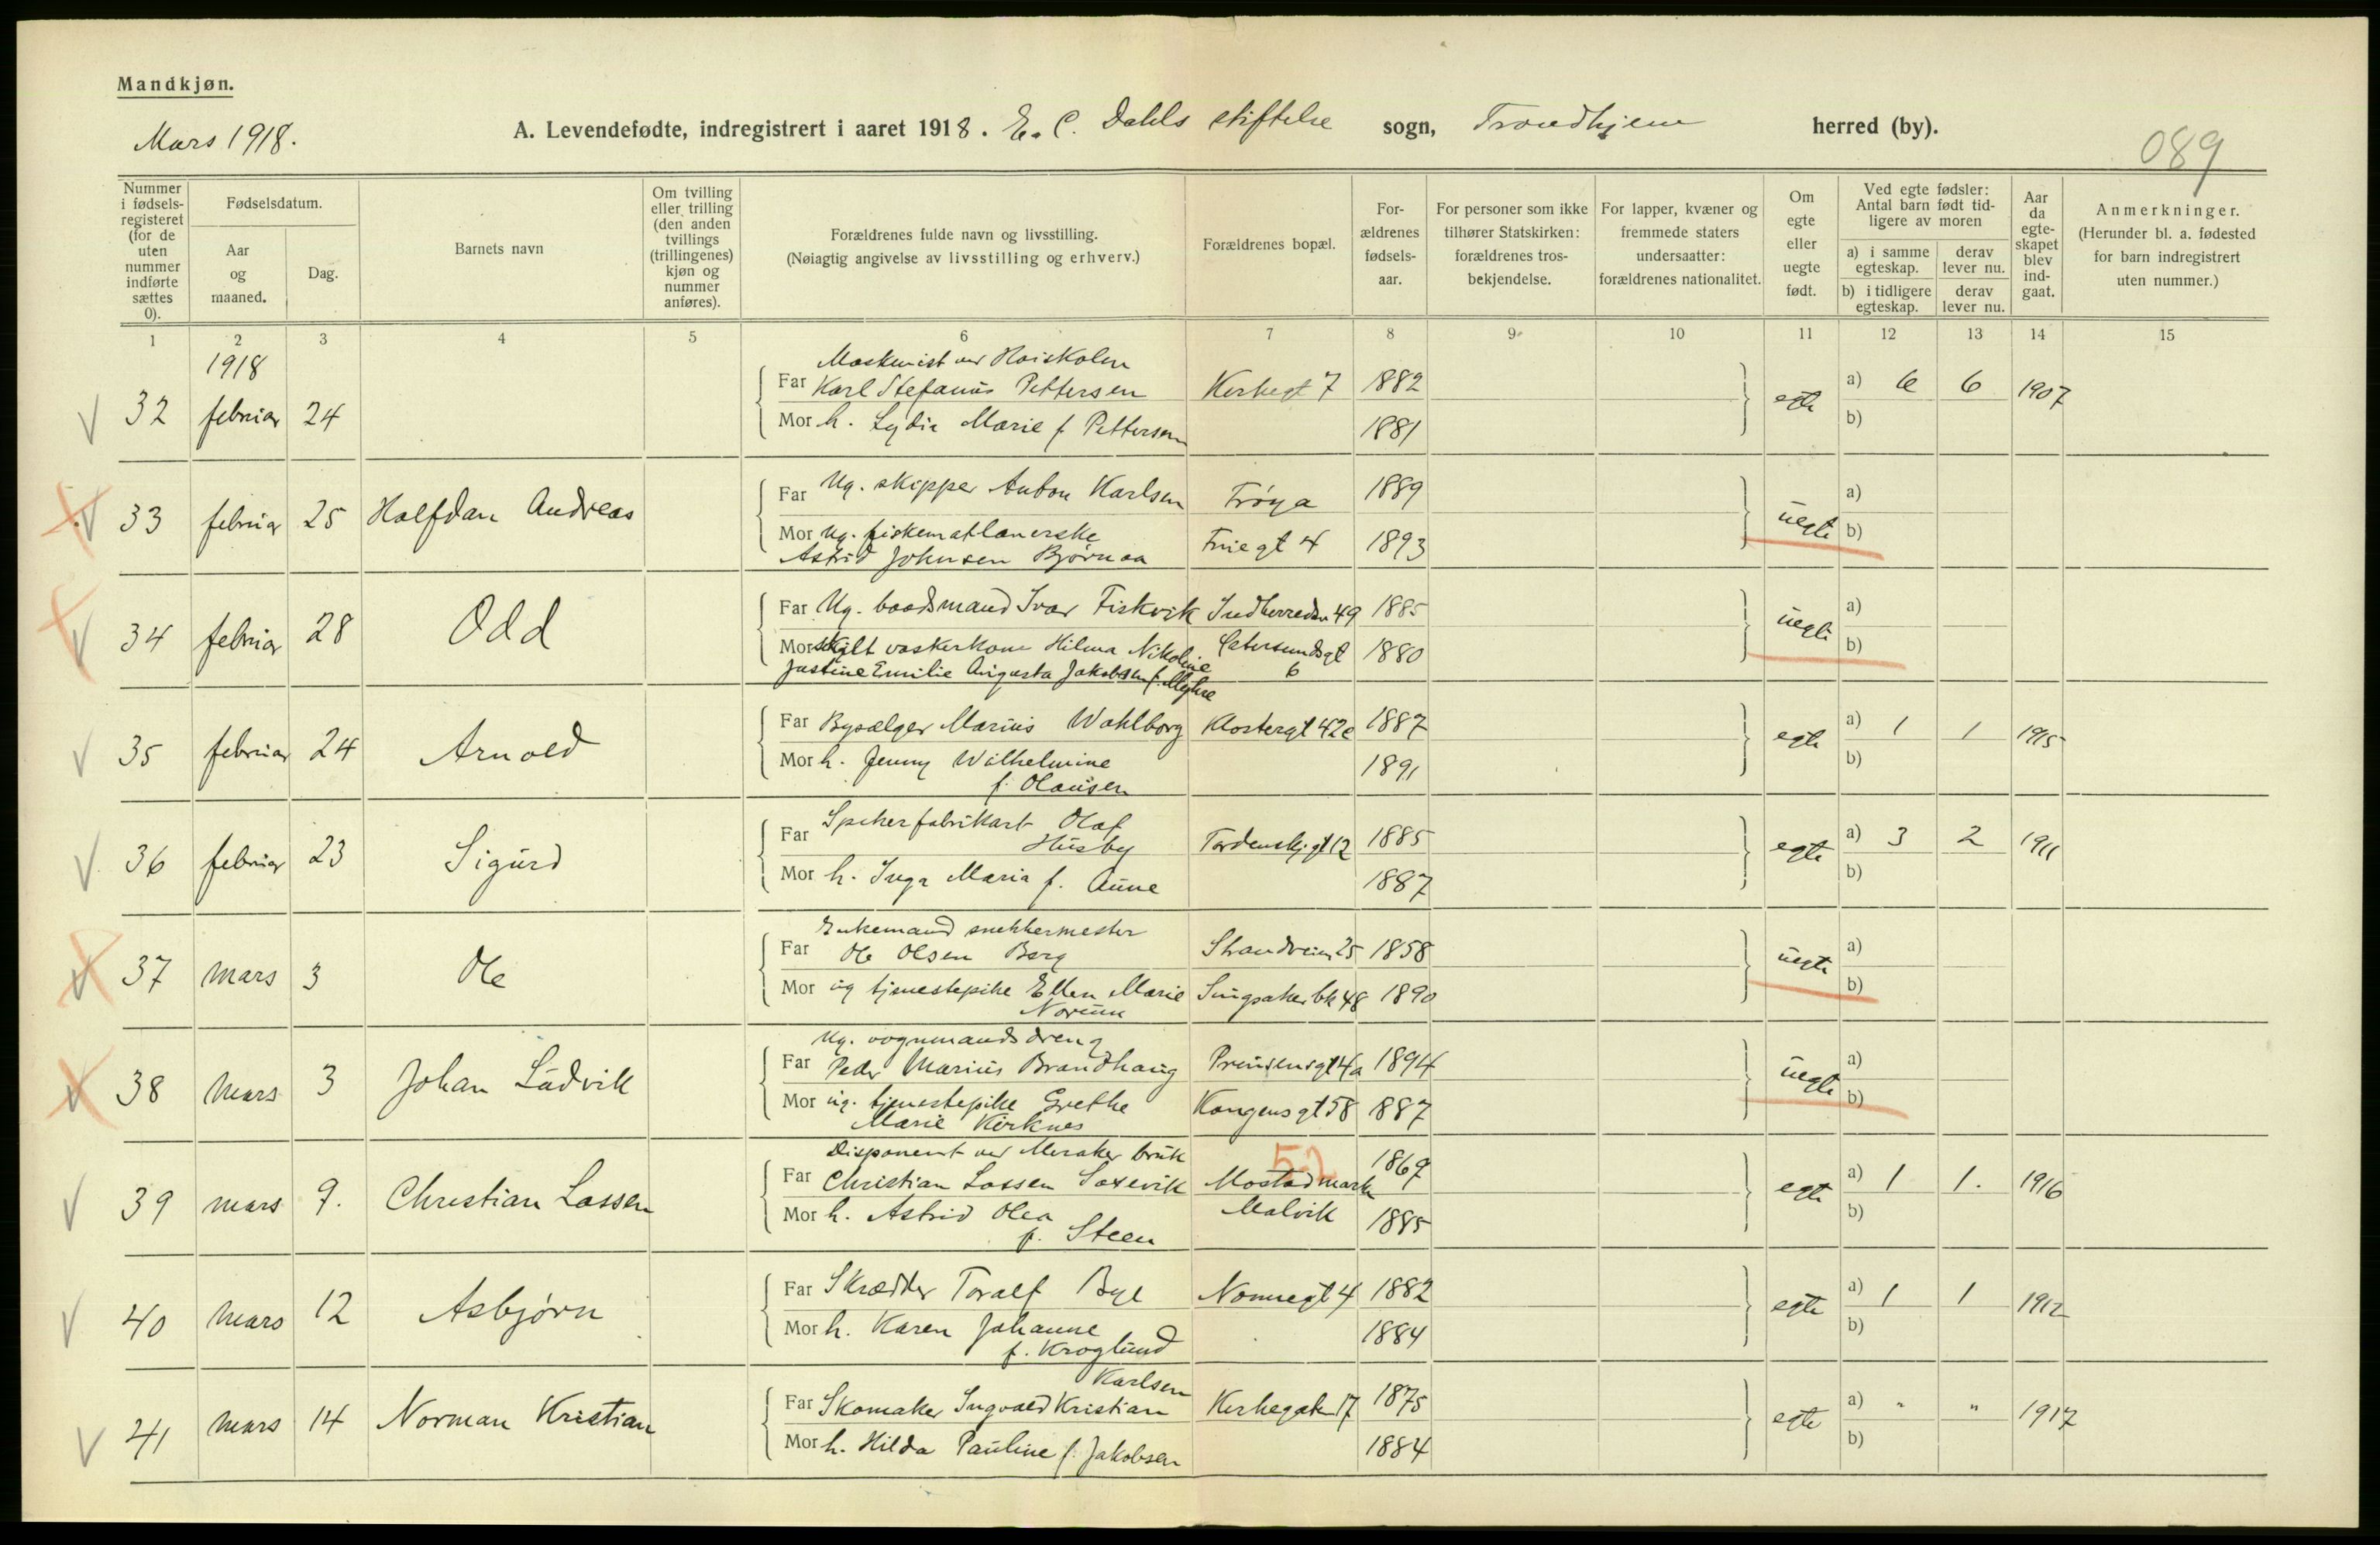 Mandkjøn.
Mars 1918.
A. Levendefødte, indregistrert i aaret 1918. E. C. Dahls stiftelse sogn, Trondhjem herred (by).
089
Nummer i fødsels-registeret (for de uten nummer indførte sættes 0).
Fødselsdatum.
Aar og maaned.
Dag.
Barnets navn
Om tvilling eller trilling (den anden tvillings (trillingenes) kjøn og nummer anføres).
Forældrenes fulde navn og livsstilling.
(Nøiagtig angivelse av livsstilling og erhverv.)
Forældrenes bopæl.
For-ældrenes fødsels-aar.
For personer som ikke tilhører Statskirken: forældrenes tros-bekjendelse.
For lapper, kvæner og fremmede staters undersaatter: forældrenes nationalitet.
Om egte eller uegte født.
Ved egte fødsler: Antal barn født tid-ligere av moren
a) i samme egteskap.
derav lever nu.
b) i tidligere egteskap.
derav lever nu.
Aar da egte-skapet blev ind-gaat.
Anmerkninger.
(Herunder bl. a. fødested for barn indregistrert uten nummer.)
1 2 3 4 5 6 7 8 9 10 11 12 13 14 15
1918
Maskinist ved Høiskolen
32 februar 24 Far Karl Stefanus Pettersen Kirkegt 7 1882 egte a) 6 6 1907
Mor h. Lydia Marie f. Pettersen 1881 b)
33 februar 25 Halfdan Andreas Far Ug. skipper Anton Karlsen Frøya 1889 uegte a)
Mor ug. fiskematlanerske Friegt 4 1893 b)
Astrid Johnsen Bjørnaa
34 februar 28 Odd Far Ug. baadsmand Ivar Fiskvik Indherredsv 49 1885 uegte a)
Mor skilt vaskerkone Hilma Nikoline Catersundsgt 6 1880 b)
Justine Emilie Augusta Jakobsen f. Myhre
35 februar 24 Arnold Far Bysælger Marius Wahlborg Klostergt 42c 1887 egte a) 1 1 1915
Mor h. Jenny Wilhelmine 1891 b)
f. Olausen
36 februar 23 Sigurd Far Spikerfabrikarb Olaf Husby Tordenskj.gt 12 1885 egte a) 3 2 1911
Mor h. Inga Maria f. Aune 1887 b)
Enkemand snekkermester
37 mars 3 Ole Far Ole Olsen Berg Strandveien 25 1858 uegte a)
Mor ug tjenestepike Ellen Marie Singsaker bk 48 1890 b)
Norum
Ug. vognmandsdreng
38 mars 3 Johan Ludvik Far Peder Marius Brandhaug Prinsensgt 4a 1894 uegte a)
Mor ug. tjenestepike Grethe Kongensgt 58 1887 b)
Marie Kirknes
Disponent ved Meraker bruk
52
39 mars 9. Christian Lassen Far Christian Lassen Saxevik Mostadmarka 1869 egte a) 1 1. 1916
Mor h. Astrid Olea Malvik 1885 b)
f. Steen
40 mars 12 Asbjørn Far Skrædder Toralf Bye Nonnegt 4 1882 egte a) 1 1 1912
Mor h. Karen Johanne 1884 b)
f. Kroglund
Karlsen
41 mars 14 Norman Kristian Far Skomaker Ingvald Kristian Kirkegaten 17 1875 egte a) " " 1917
Mor h. Hilda Pauline f. Jakobsen 1884 b)